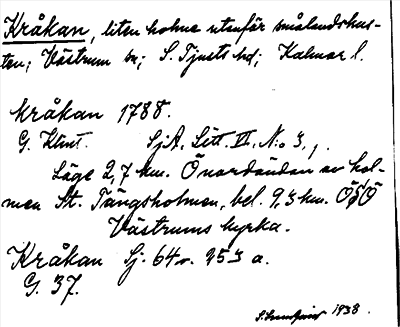 Kråkan, liten holme utanför smålandskus-
ten; Västrum sn; S. Tjusts hd; Kalmar l.
kråkan 1788.
G. Klint. SjA. Litt. VI, N:o 3, 1.
Läge 2,7 km. Ö nordändan av hol-
men St. Tängsholmen, bel. 9,3 km. ÖSÖ
Västrums kyrka.
Kråkan Sj. 64 v. 253 a.
G. 37.
1938.